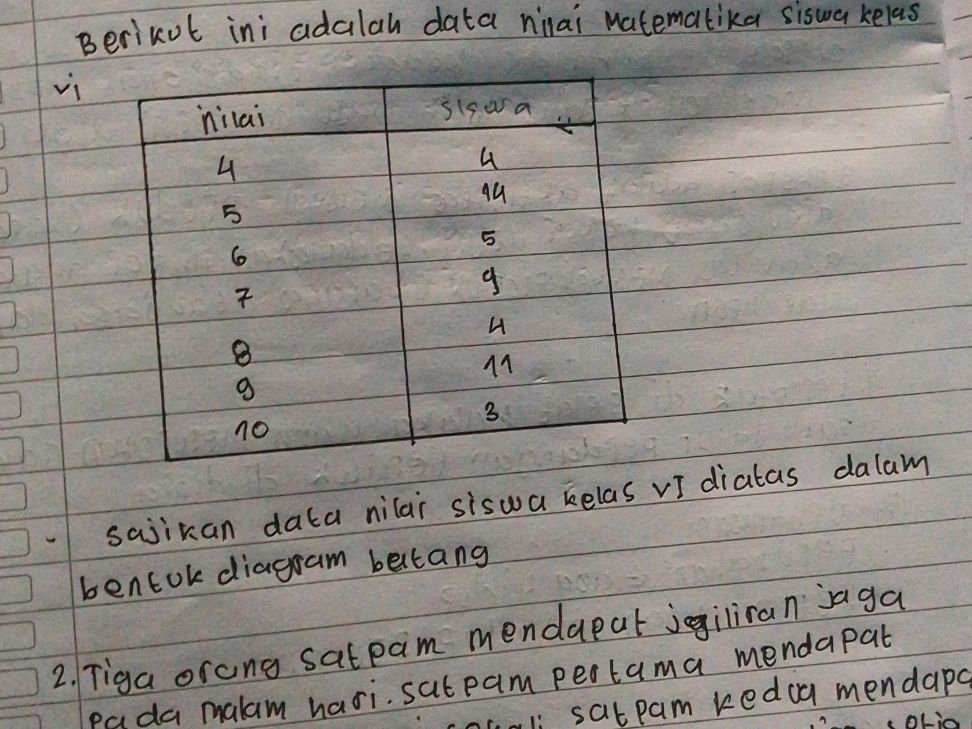 Berikut ini adalah data nilai Matematika siswa kelas
vi
nilai siswa
4 4
5 14
6 5
7 9
8 4
9 11
10 3
- sajikan data nilai siswa kelas VI diatas dalam
bentuk diagram batang
2. Tiga orang satpam mendapat giliran jaga
pada malam hari. satpam pertama mendapat
satpam kedua mendapa